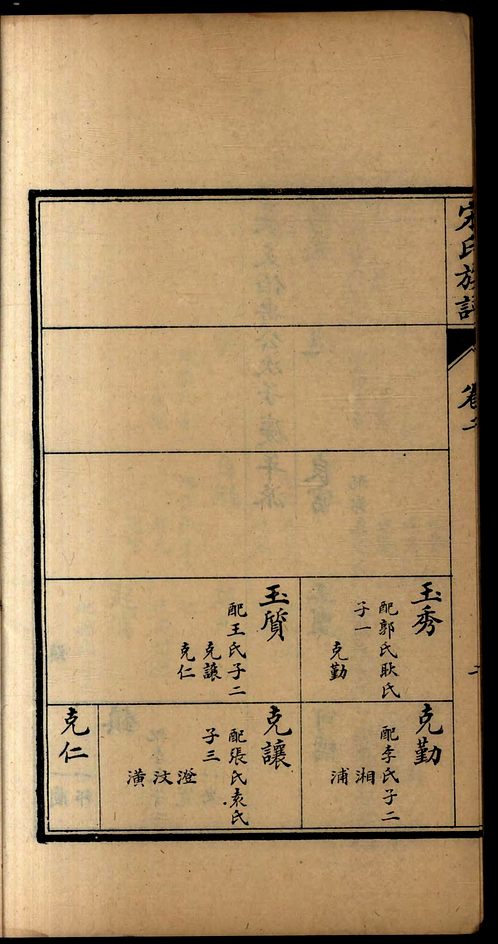 宋氏族譜
卷二
二
玉秀
配郭氏耿氏
子一
克勤
玉質
配王氏子二
克讓
克仁
克勤
配李氏子二
湘
浦
克讓
配張氏袁氏
子三
澄
汶
潢
克仁